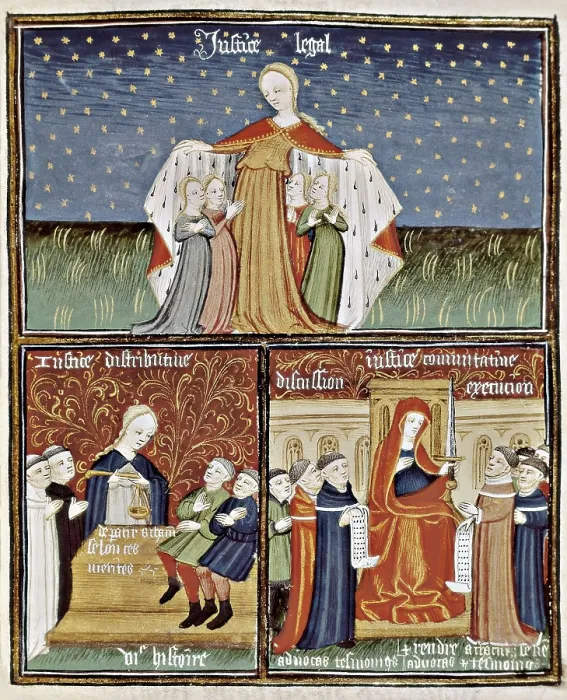 Justice legal
Iustice distributiue
departir a chacun
selon ces
merites
vi^e histoire
iustice commutatiue
discussion execution
aduocas tesmoings
& rendre a chacun le sie
aduocas & tesmoing